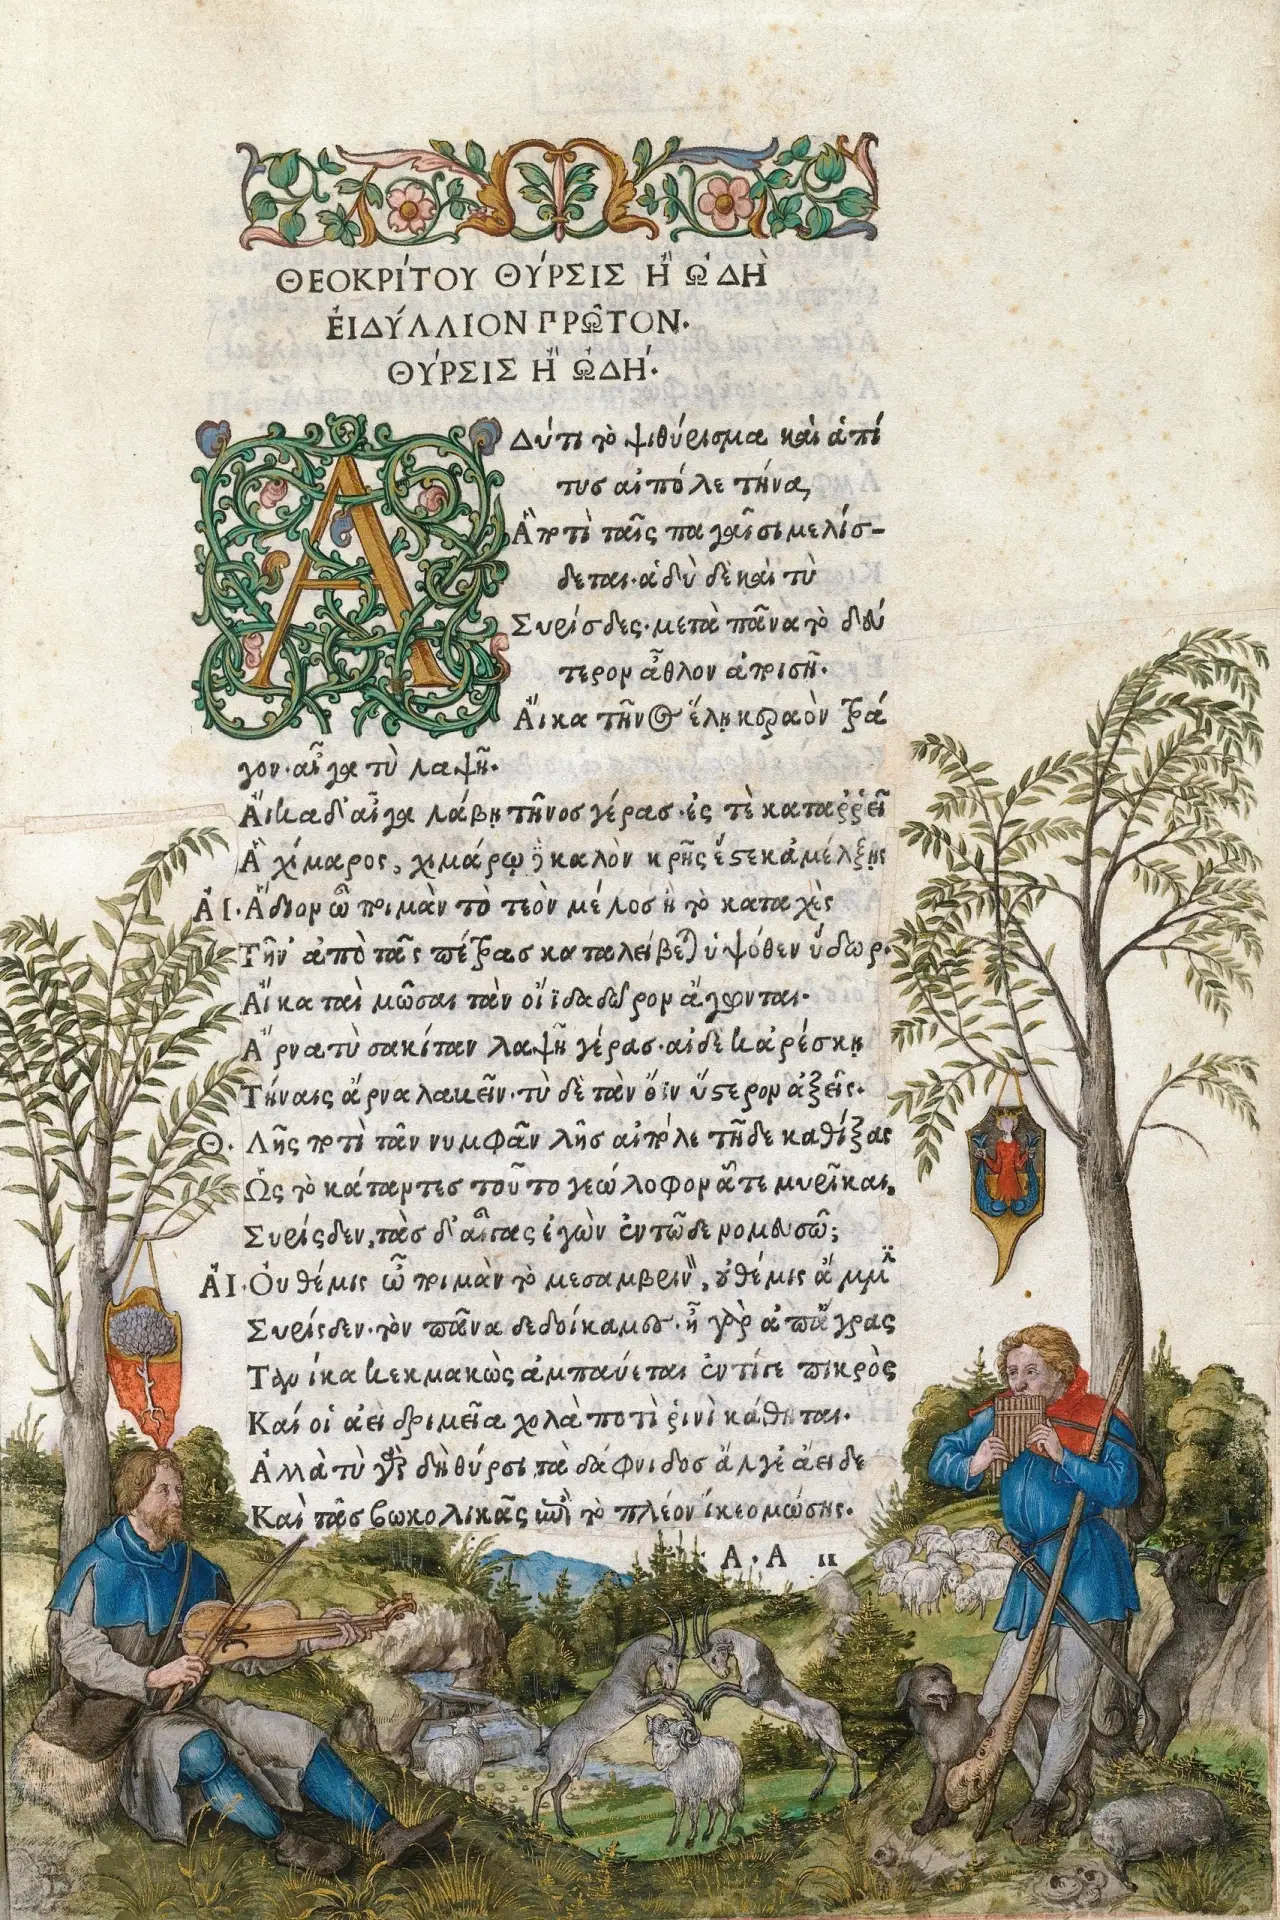 ΘΕΟΚΡΊΤΟΥ ΘΎΡΣΙΣ Ἢ ᾨΔῊ
ἘΙΔΎΛΛΙΟΝ ΠΡΩ͂ΤΟΝ·
ΘΎΡΣΙΣ Ἢ ᾨΔΉ·
ΑΔύτι τὸ ψιθύρισμα καὶ ἁ πί
τυσ αἰπόλε τήνα,
Ἃ ποτὶ ταῖς παγαῖσι μελίσ-
δεται·ἁδὺ δὲ καὶ τὺ
Συρίσδες·μετὰ πᾶνα τὸ δεύ
τερον ἆθλον ἀποισῆ·
Ἄικα τῆνος ἕλῃ κεραὸν τρά
γον·αἶγα τὺ λαψῆ·
Ἄικα δ'αἶγα λάβῃ τῆνος γέρασ·ἐς τὲ καταῤῥεῖ
Ἁ χίμαρος, χιμάρῳ δὲ καλὸν κρῆς ἔστε κἀμέλξῃς
ἈΙ·Ἅδιον ὦ ποιμὰν τὸ τεὸν μέλοσ ἢ τὸ καταχὲς
Τῆν' ἀπὸ τᾶς πέτρασ καταλείβεται ὑψόθεν ὕδωρ·
Ἄικα ταὶ μῶσαι τὰν οἴϊδα δῶρον ἄγωνται·
Ἄρνα τὺ σακίταν λαψῆ γέρασ·αἰδέ κ'ἀρέσκῃ
Τήναις ἄρνα λαβεῖν·τὺ δὲ τὰν ὄϊν ὕστερον ἀξεῖς·
Θ· Λῆς ποτὶ τᾶν νυμφᾶν λῆσ αἰπόλε τῆδε καθίξας
Ὡς τὸ κάταντεσ τοῦτο γεώλοφον ἅτε μυρῖκαι,
Συρίςδεν,τὰσ δ'αἶγας ἐγὼν ἐν τῶδε νομευσῶ;
ἈΙ·Ου θέμις ὦ ποιμὰν τὸ μεσαμβρινὸν, οὐ θέμις ἄμμιν
Συρίςδεν·τὸν πᾶνα δεδοίκαμες·ἦ γὰρ ἀπ'ἄγρας
Τανίκα κεκμακὼς ἀμπαύεται ἐντίγε πικρὸς
Καί οἱ ἀεὶ δριμεῖα χολὰ ποτὶ ῥινὶ κάθηται·
Ἀλλὰ τὺ γὰρ δὴ θύρσι τὰ δάφνιδοσ ἄλγεα ἀείδε
Καὶ τᾶσ βωκολικᾶς ἐπὶ τὸ πλέον ἵκεο μώσης·
Α·Α ιι